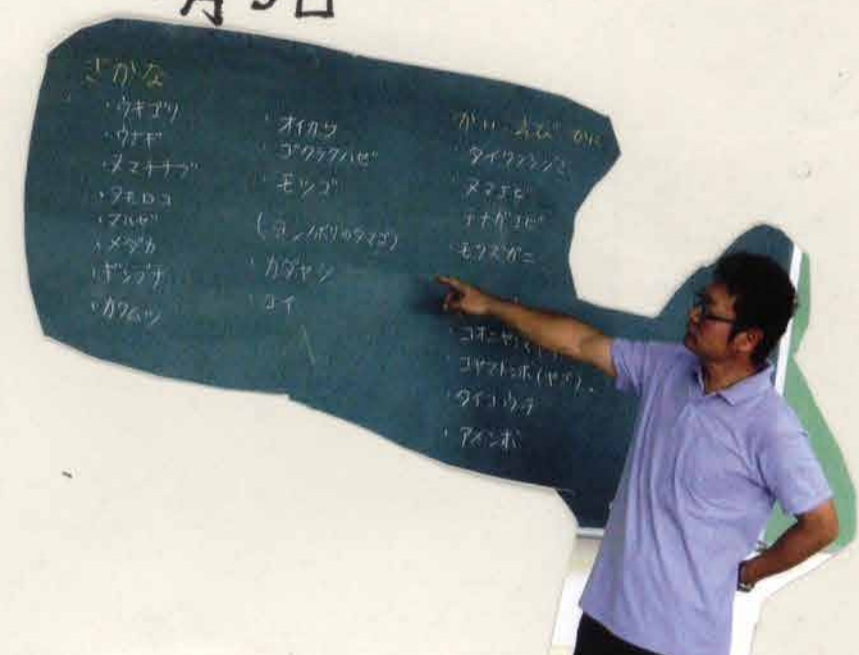 月9日
さかな
・ウキゴリ
・ウナギ
・ヌマチチブ
・タモロコ
・マハゼ
・メダカ
・ギンブナ
・カワムツ
・オイカワ
・ゴクラクハゼ
・モツゴ
(ヨシノボリのタマゴ)
・カダヤシ
・コイ
かい・えび・かに
・タイワンシジミ
・ヌマエビ
・テナガエビ
・モクズガニ
・コオニヤンマ
・コヤマトンボ(ヤゴ)。
・タイコウチ
・アメンボ